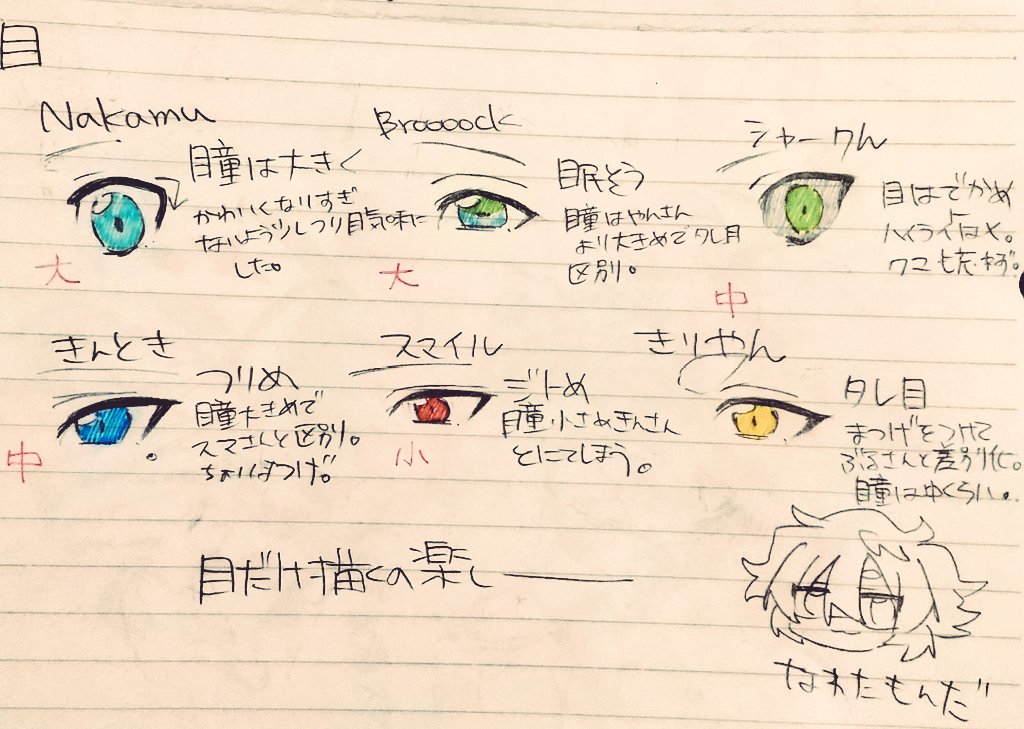 目
Nakamu
瞳は大きく
かわいくなりすぎ
ないよう少しつり目気味に
した。
大
Broooock
眠そう
瞳はやんさん
より大きめでタレ目
区別。
大
シャークん
目はでかめ
ハイライトは×。
クマも
中
きんとき
つりめ
瞳大きめで
スマさんと区別。
ちょいまつげ。
中
スマイル
ジトめ
瞳小さめきんさん
とにてしまう。
小
きりやん
タレ目
まつげをつけて
ぶるさんと差別化。
瞳は中くらい。
目だけ描くの楽しー
なれたもんだ